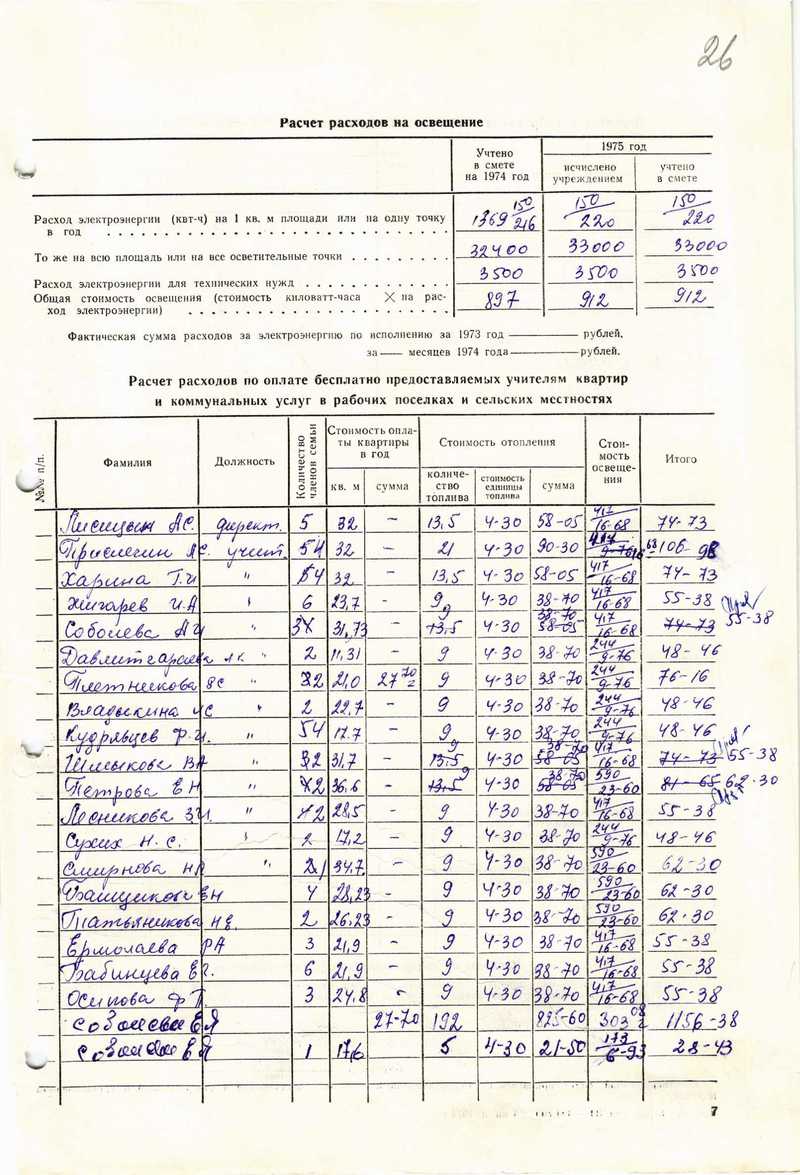 26
Расчет расходов на освещение
Учтено в смете на 1974 год
1975 год
исчислено учреждением
учтено в смете
Расход электроэнергии (квт-ч) на 1 кв. м площади или на одну точку
в год 1369 150/216 150/220 150/220
То же на всю площадь или на все осветительные точки 32400 33000 33000
Расход электроэнергии для технических нужд 3500 3500 3500
Общая стоимость освещения (стоимость киловатт-часа × на рас-
ход электроэнергии) 897 912 912
Фактическая сумма расходов за электроэнергию по исполнению за 1973 год рублей,
за месяцев 1974 года рублей.
Расчет расходов по оплате бесплатно предоставляемых учителям квартир
и коммунальных услуг в рабочих поселках и сельских местностях
№№ п/п.
Фамилия
Должность
Количество членов семьи
Стоимость опла-
ты квартиры
в год
кв. м
сумма
Стоимость отопления
количе-
ство
топлива
стоимость
единицы
топлива
сумма
Стои-
мость
освеще-
ния
Итого
Лисицын А С. директ. 5 32 – 13,5 4-30 58-05 417/16-68 74-73
А С. учит. 4 32 – 21 4-30 90-30 106-98
Харина Т. И " 4 32 – 13,5 4-30 58-05 417/16-68 74-73
Жигарев И. А " 6 23,7 – 9 4-30 38-70 417/16-68 55-38
Соболева А И " 3 31,73 – 13,5 4-30 38-70 58-05 417/16-68 74-73 55-38
" 2 11,31 – 9 4-30 38-70 244/9-76 48-46
Плетникова В С " 2 21,0 27-70 9 4-30 38-70 244/9-76 76-16
Владыкина " 2 22,7 – 9 4-30 38-70 244/9-76 48-46
Кудрявцев Ф. И. " 4 17.7 – 9 4-30 38-70 244/9-76 48-46
Шмыкова В А " 2 31,7 – 13,5 9 4-30 38-70 58-05 417/16-68 74-73 55-38
Петрова Е Н " 2 36,6 – 13,5 9 4-30 38-70 58-05 590/23-60 81-65 62-30
Лесникова З И. " 2 28,5 – 9 4-30 38-70 417/16-68 55-38
Сухих Н. С. " 2 17,2 – 9 4-30 38-70 244/9-76 48-46
Смирнова Н А " 34,7 – 9 4-30 38-70 590/23-60 62-30
Е Н 4 28,23 – 9 4-30 38-70 590/23-60 62-30
Татьяникова Н В. 2 26,23 – 9 4-30 38-70 590/23-60 62-30
Ермолаева Р А 3 21,9 – 9 4-30 38-70 417/16-68 55-38
Бабинцева Е Г. 6 21,9 – 9 4-30 38-70 417/16-68 55-38
Осипова Ф Т. 3 24,8 – 9 4-30 38-70 417/16-68 55-38
27-70 192 825-60 303 08 1156-38
1 17,6 5 4-30 21-50 173/6-93 28-43
7